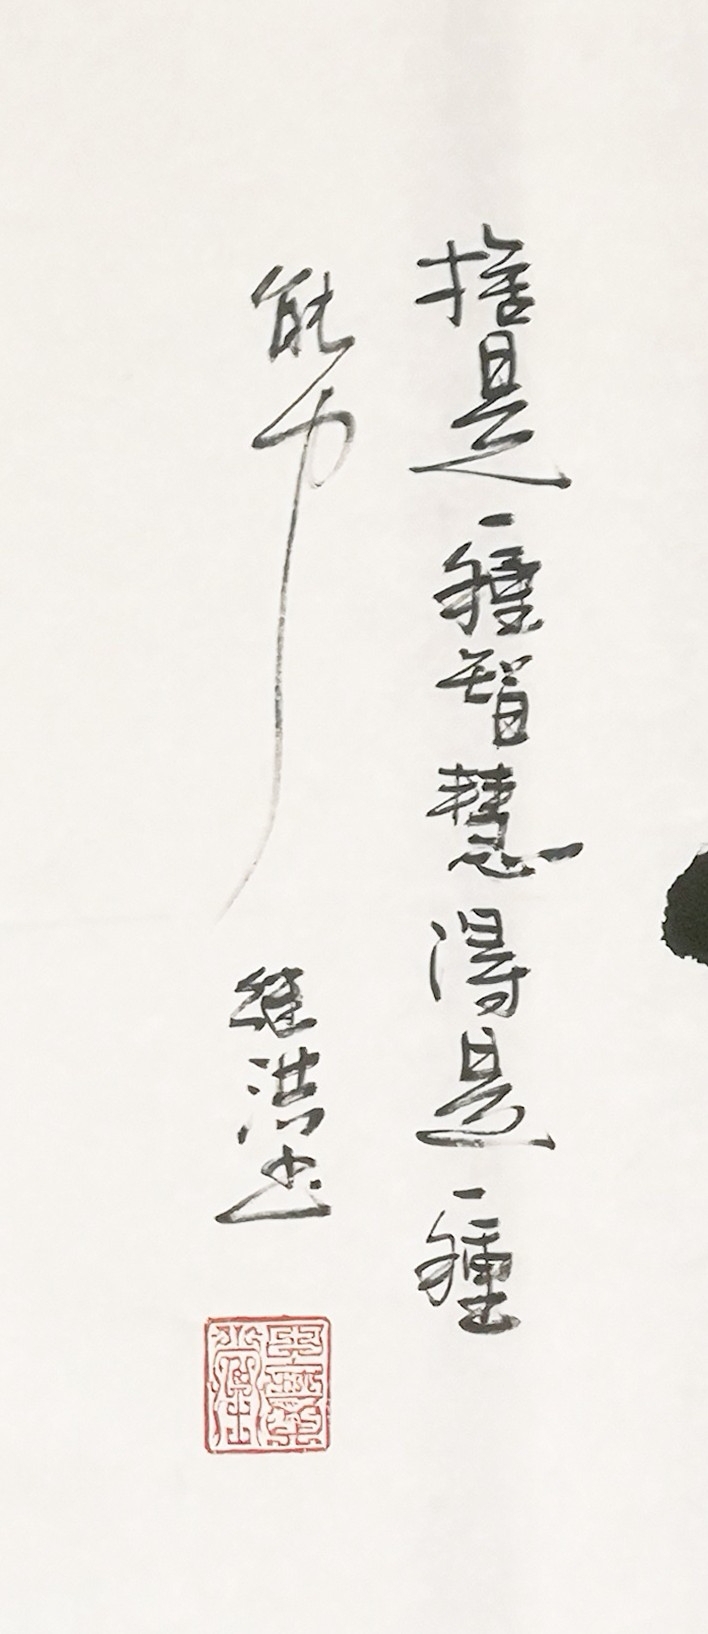 捨是一種智慧得是一種
能力
继洪书